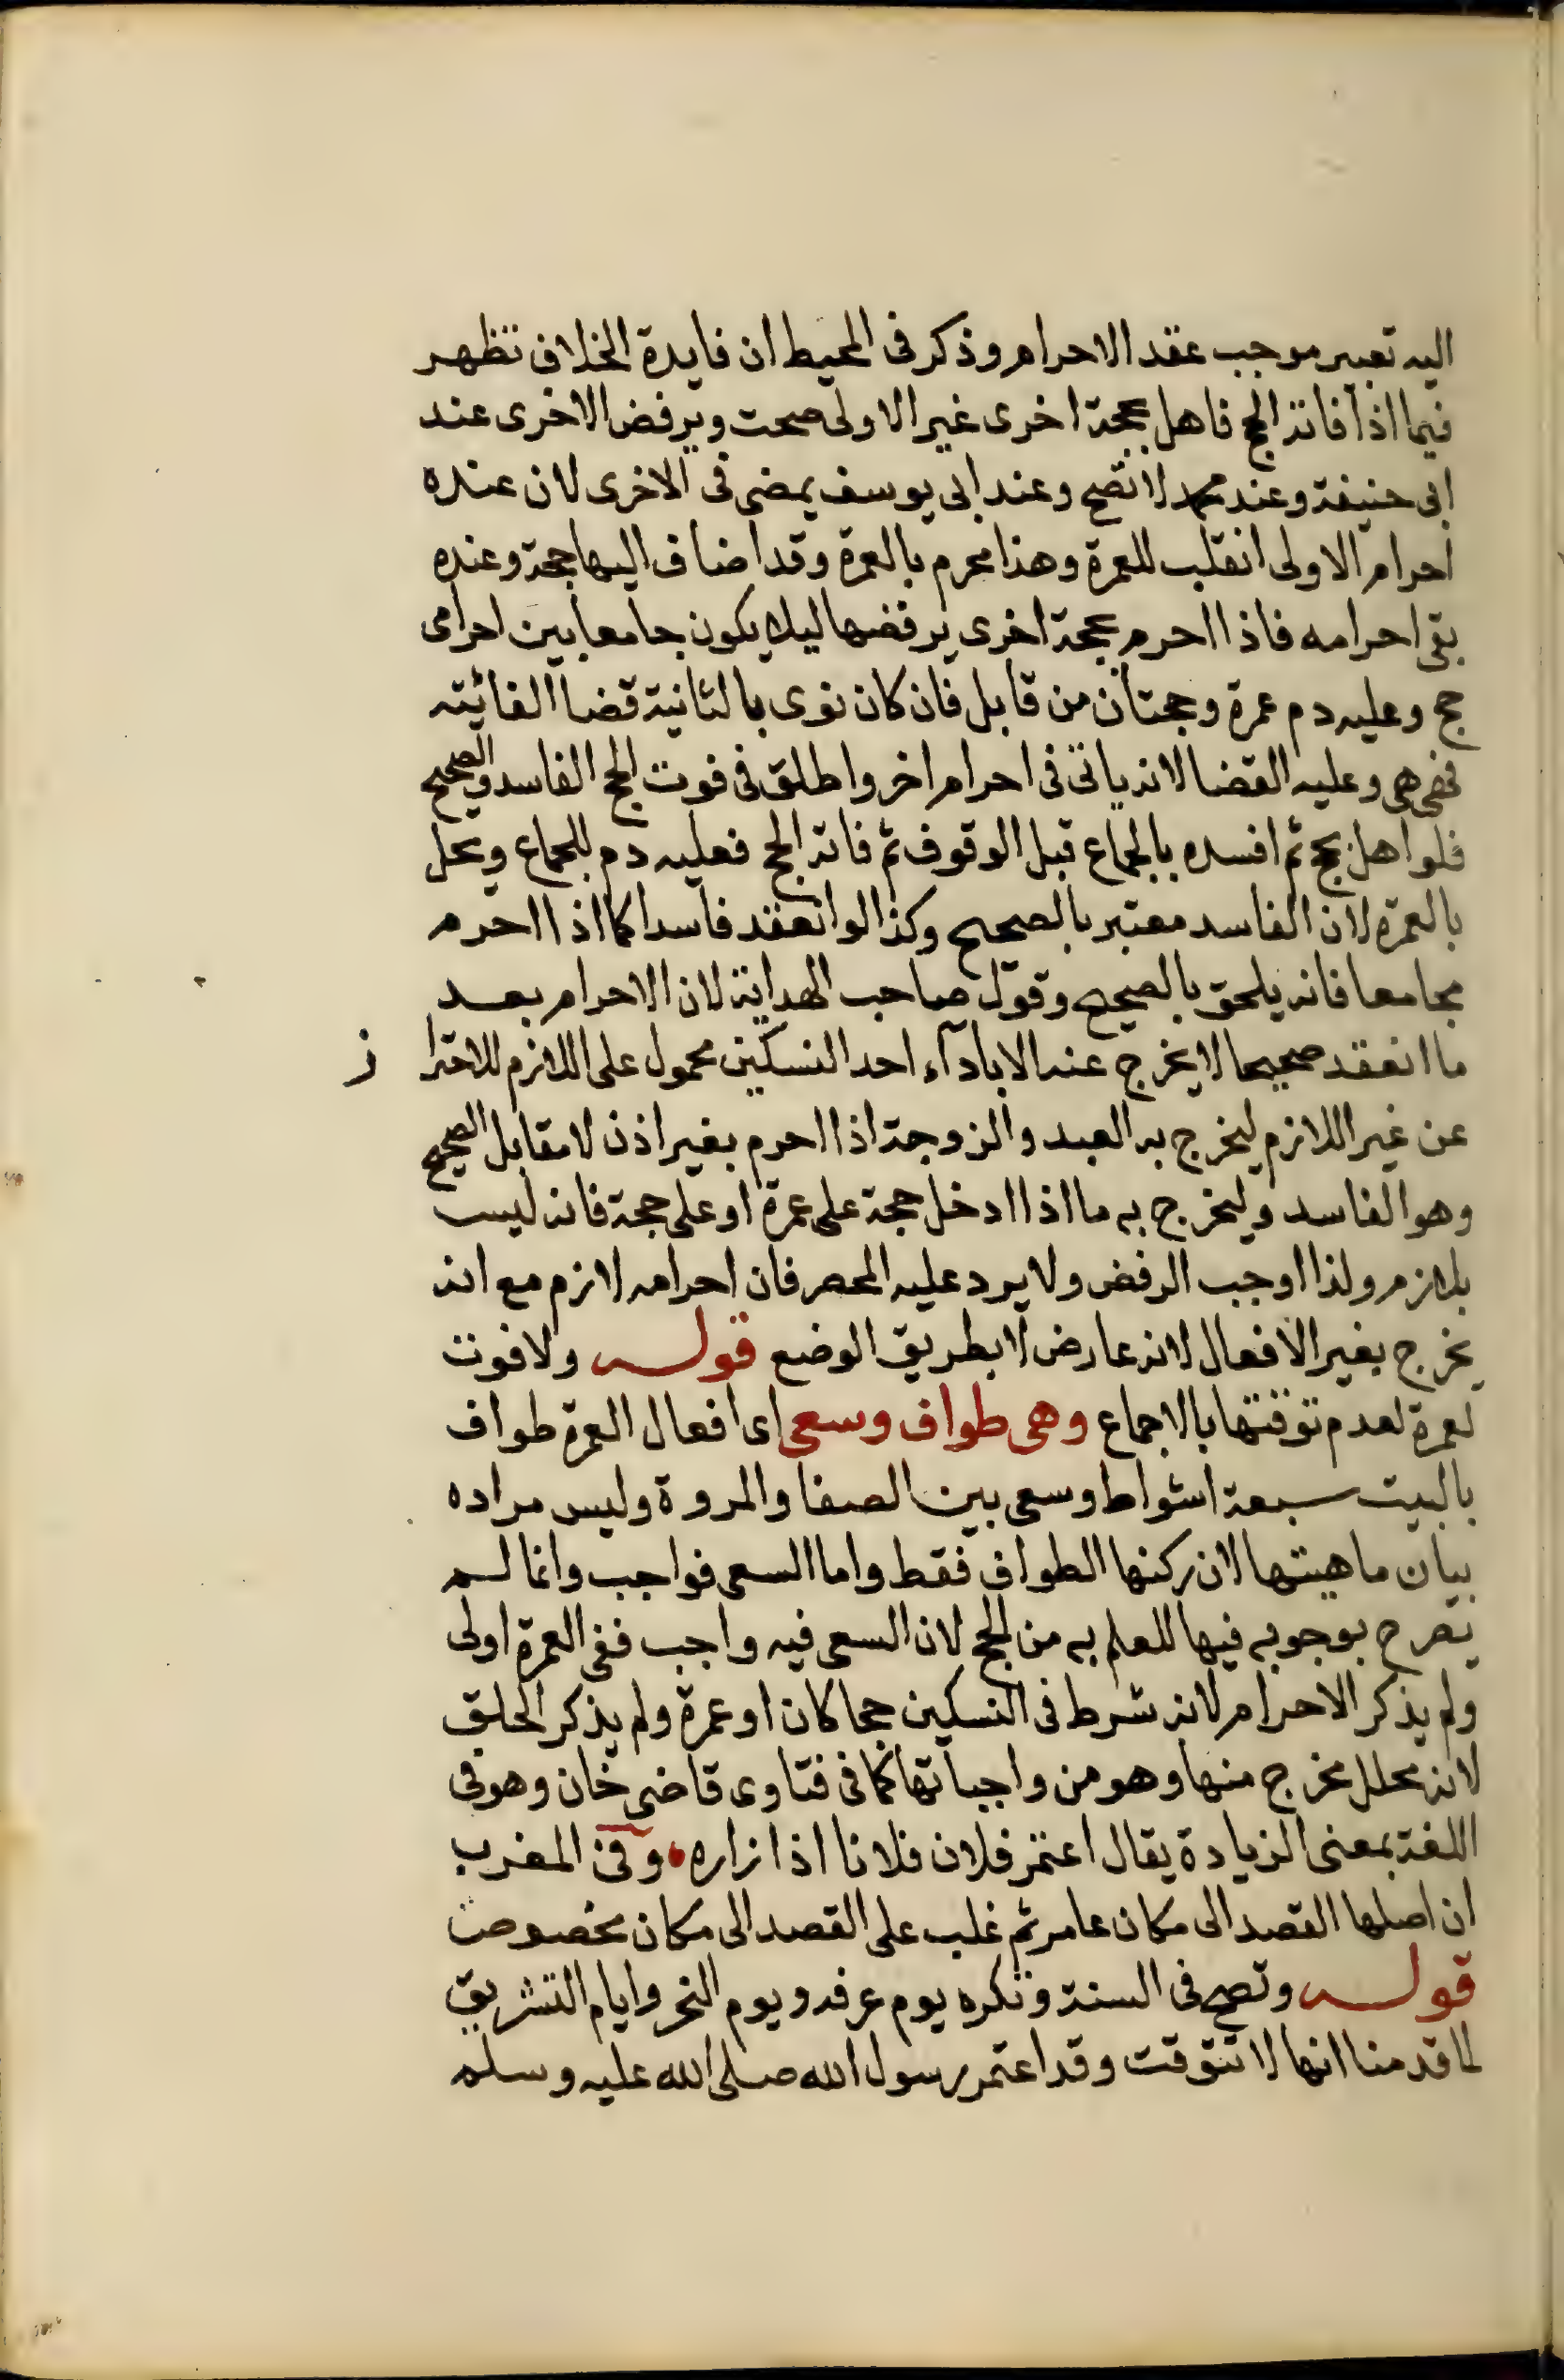 اليه تعيير موجب عقد الاحرام وذكر فى المحيط ان فايدة الخلاف تظهر
فيما اذا فاته الحج فاهل بحجة اخرى غير الاولى صحت ويرفض الاخرى عند
ابى حنيفة وعند محمد لا تصح وعند ابى يوسف يمضى فى الاخرى لان عنده
احرام الاولى انقلب للعمرة وهذا محرم بالعمرة وقد اضاف اليها حجة وعنده
بقى احرامه فاذا احرم بحجة اخرى يرفضها ليلا يكون جامعا بين احرامى
حج وعليه دم عمرة وحجتان من قابل فان كان نوى بالثانية قضا الفائيته
فهى هى وعليه القضا لانه ياتى فى احرام اخر واطلق فى فوت الحج الفاسد والصحيح
فلو اهل بحج ثم افسده بالجماع قبل الوقوف ثم فاته الحج فعليه دم للجماع ويحل
بالعمرة لان الفاسد معتبر بالصحيح وكذا لو انعقد فاسدا كما اذا احرم
مجامعا فانه يلحق بالصحيح وقول صاحب الهداية لان الاحرام بعد
ما انعقد صحيحا لا يخرج عنه الا باداء احد النسكين محمول على اللازم للاحترا ز
عن غير اللازم ليخرج به العبد والزوجة اذا احرم بغير اذن لا مقابل الصحيح
وهو الفاسد وليخرج به ما اذا ادخل حجة على عمرة او على حجة فانه ليس
بلازم ولذا اوجب الرفض ولا يرد عليه المحصر فان احرامه لازم مع انه
يخرج بغير الافعال لانه عارض لا بطريق الوضع قوله ولا فوت
لعمرة لعدم توقتها بالاجماع وهى طواف وسعى اى افعال العمرة طواف
بالبيت سبعة اشواط وسعى بين الصفا والمروة وليس مراده
بيان ماهيتها لان ركنها الطواف فقط واما السعى فواجب وانما لم
يصرح بوجوبه فيها للعلم به من الحج لان السعى فيه واجب ففى العمرة اولى
ولم يذكر الاحرام لانه شرط فى النسكين حجا كان او عمرة ولم يذكر الحلق
لانه محلل مخرج منها وهو من واجباتها كما فى فتاوى قاضى خان وهو فى
اللغة بمعنى الزيادة يقال اعتمر فلان فلانا اذا زاره وفى المغرب
ان اصلها القصد الى مكان عامر ثم غلب على القصد الى مكان مخصوص
قوله وتصح فى السنة وتكره يوم عرفه ويوم النحر وايام التشريق
لما قدمنا انها لا تتوقت وقد اعتمر رسول الله صلى الله عليه وسلم